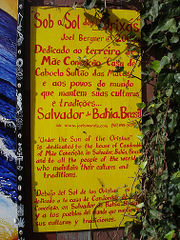 Sob o Sol dos Orixás
Joel Bergner
Dedicado ao terreiro
Mãe Conceição, Casa de
Caboclo Sultão das Matas
e aos povos do mundo
que mantem suas culturas
e tradições...
Salvador da Bahia, Brasil
"Under the Sun of the Orishas"
is dedicated to the house of Candomblé
of Mãe Conceição, in Salvador, Bahia, Brazil
and to all the people of the world
who maintain their cultures and
traditions.
"Debajo del Sol de los Orishas"
dedicado a la casa de Candomblé de
en Salvador de Bahia
y a los pueblos del mundo que mantienen
sus culturas y tradiciones.